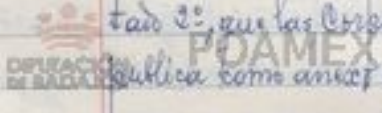 tado 2º, que las Corp
POAMEX
DIPUTACIÓN
DE BADAJOZ
publica como anexo